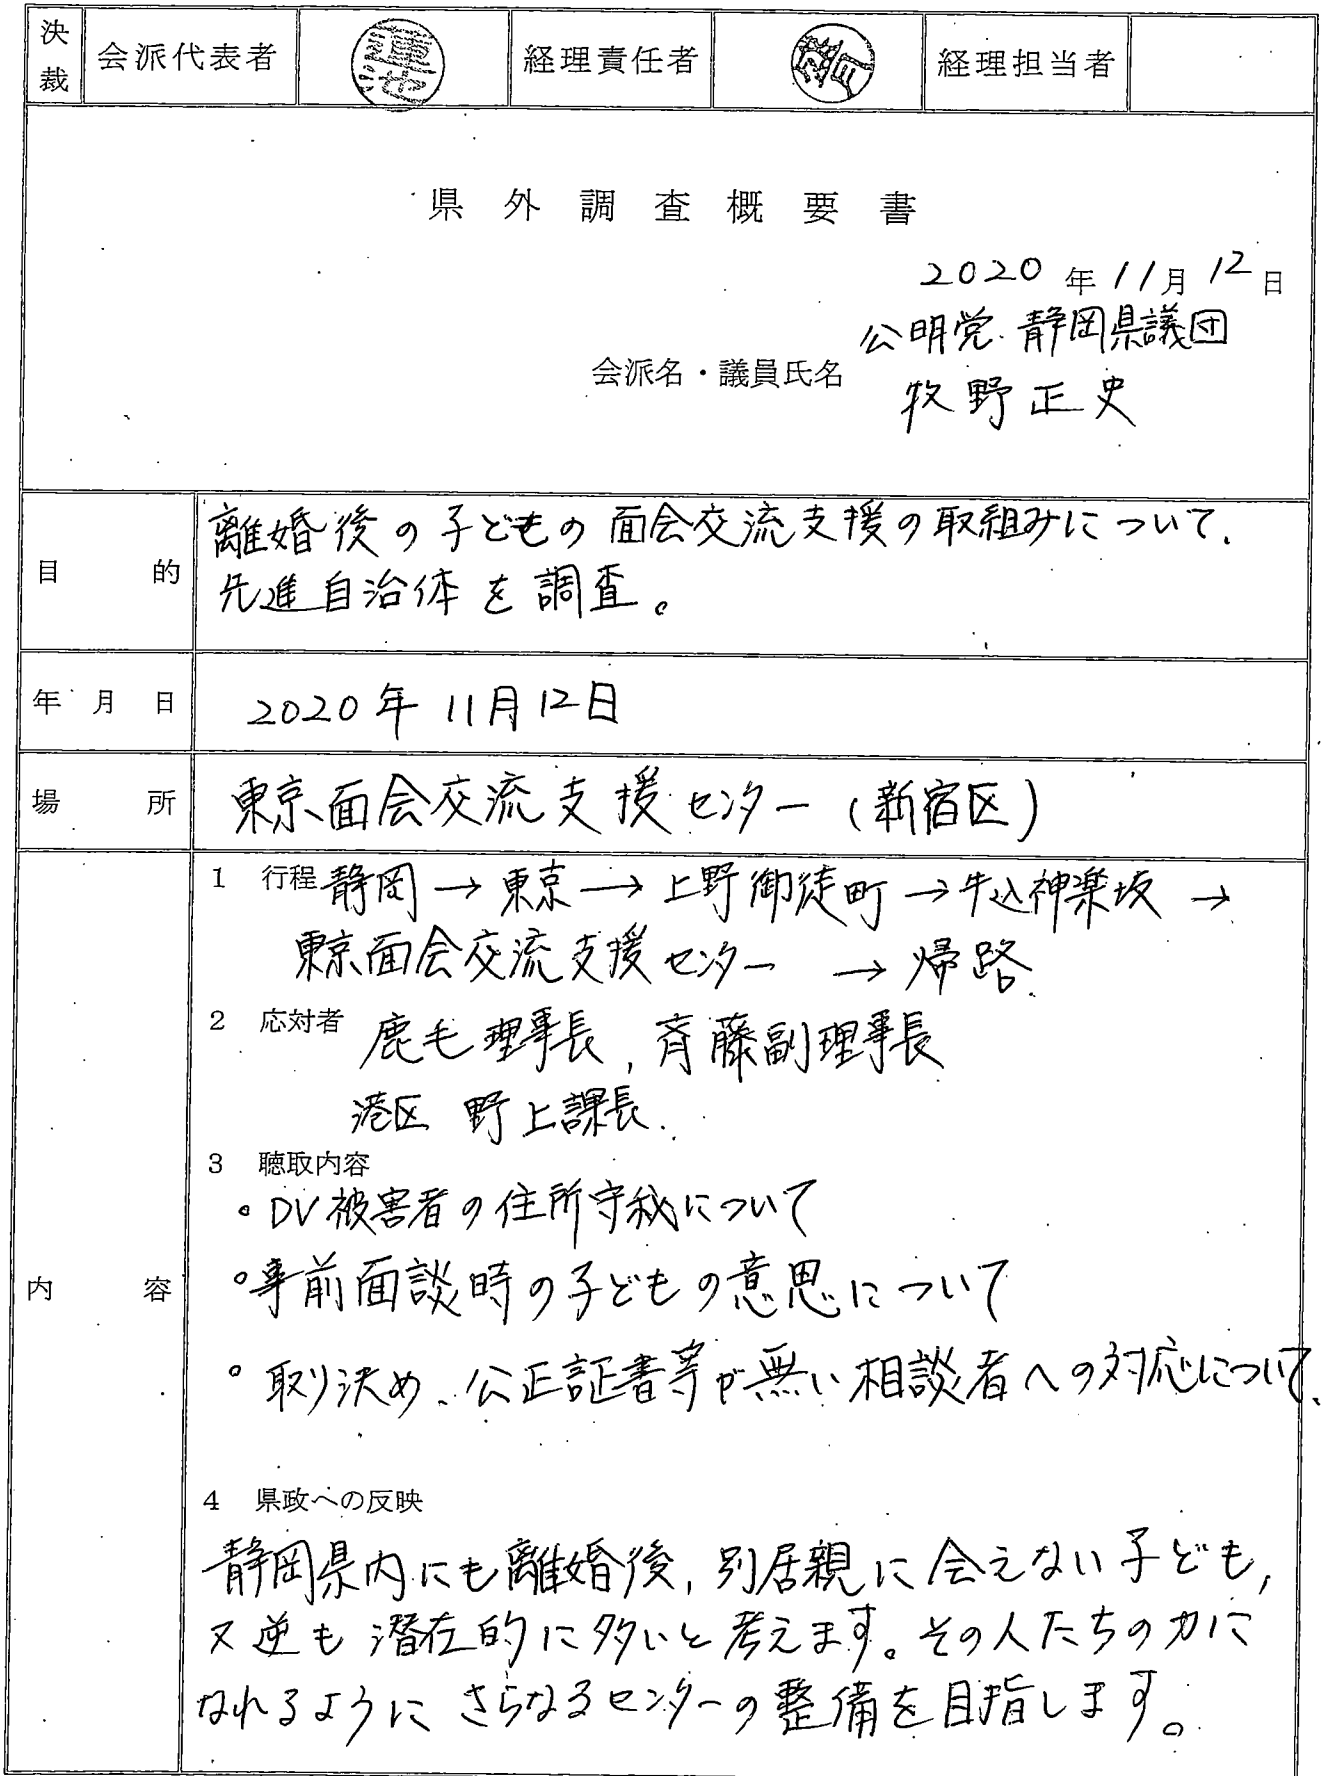 決裁 会派代表者 蓮池 経理責任者 経理担当者
県外調査概要書
2020年11月12日
公明党 静岡県議団
会派名・議員氏名
牧野正史
目的
離婚後の子どもの面会交流支援の取組みについて、
先進自治体を調査。
年月日 2020年11月12日
場所 東京面会交流支援センター (新宿区)
内容
1 行程 静岡→東京→上野御徒町→牛込神楽坂→
東京面会交流支援センター →帰路
2 応対者 鹿毛理事長, 斉藤副理事長
港区 野上課長.
3 聴取内容
・DV被害者の住所守秘について
・事前面談時の子どもの意思について
・取り決め、公正証書等が無い相談者への対応について、
4 県政への反映
静岡県内にも離婚後, 別居親に会えない子ども,
又逆も潜在的に多いと考えます。その人たちの力に
なれるようにさらなるセンターの整備を目指します。